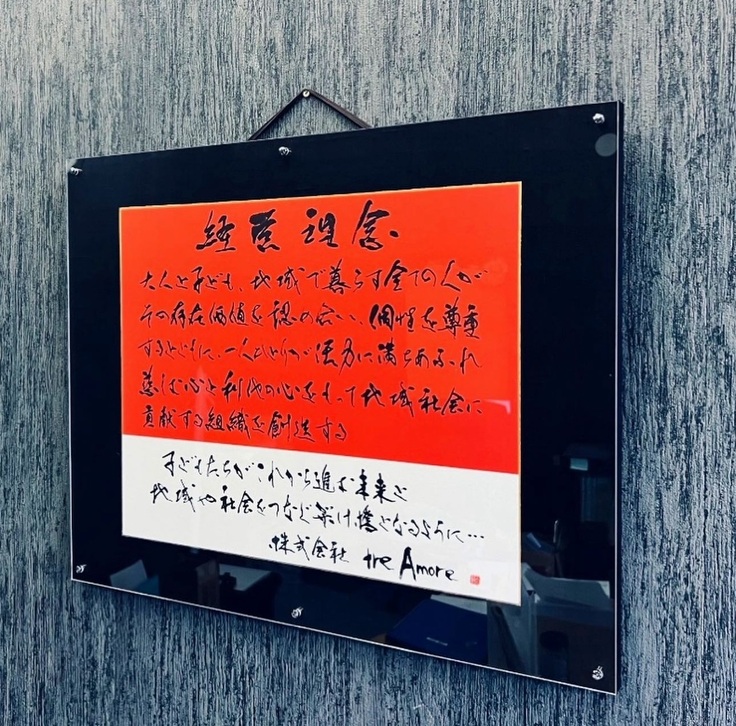 経営理念
大人と子ども、地域で暮らす全ての人が
その存在価値を認め合い、個性を尊重
するとともに、一人ひとりが活力に満ちあふれ
慈しむ心と利他の心をもって地域社会に
貢献する組織を創造する
子どもたちがこれから進む未来と
地域や社会をつなぐ架け橋となるように…
株式会社 tre Amore